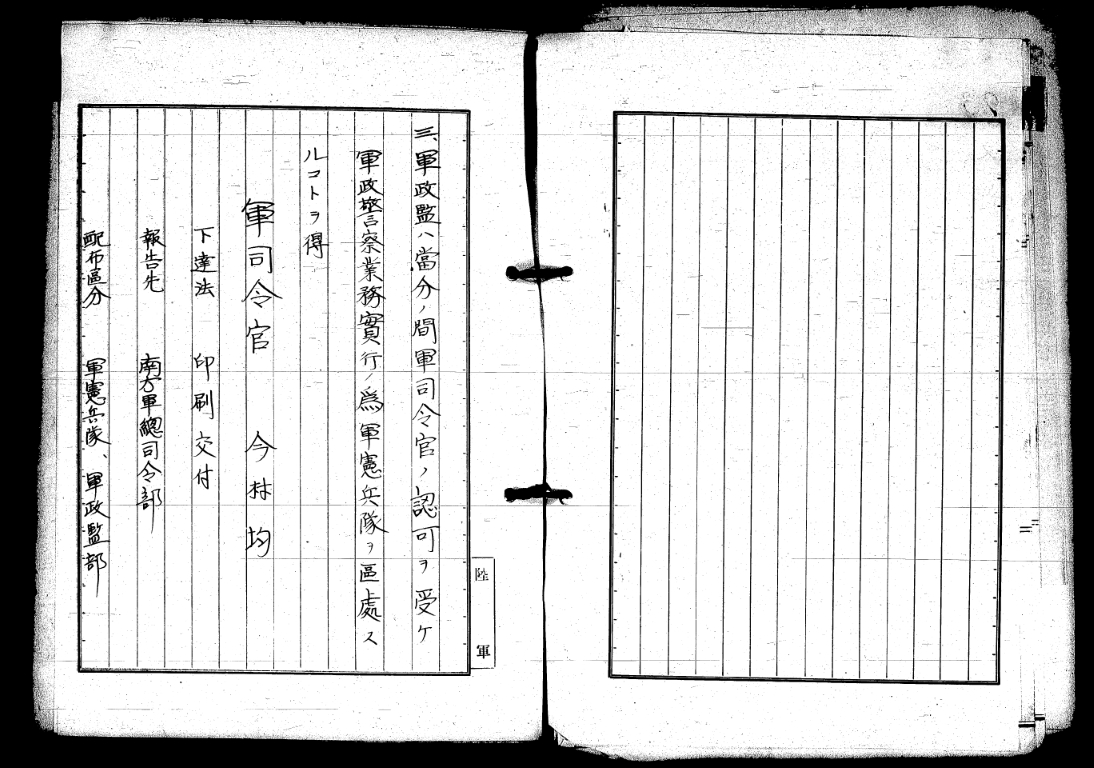 三、軍政監ハ當分ノ間軍司令官ノ認可ヲ受ケ
軍政警察業務實行ノ為軍憲兵隊ヲ區處ス
ルコトヲ得
軍司令官 今村均
下達法 印刷交付
報告先 南方軍總司令部
配布區分 軍憲兵隊、軍政監部
陸軍